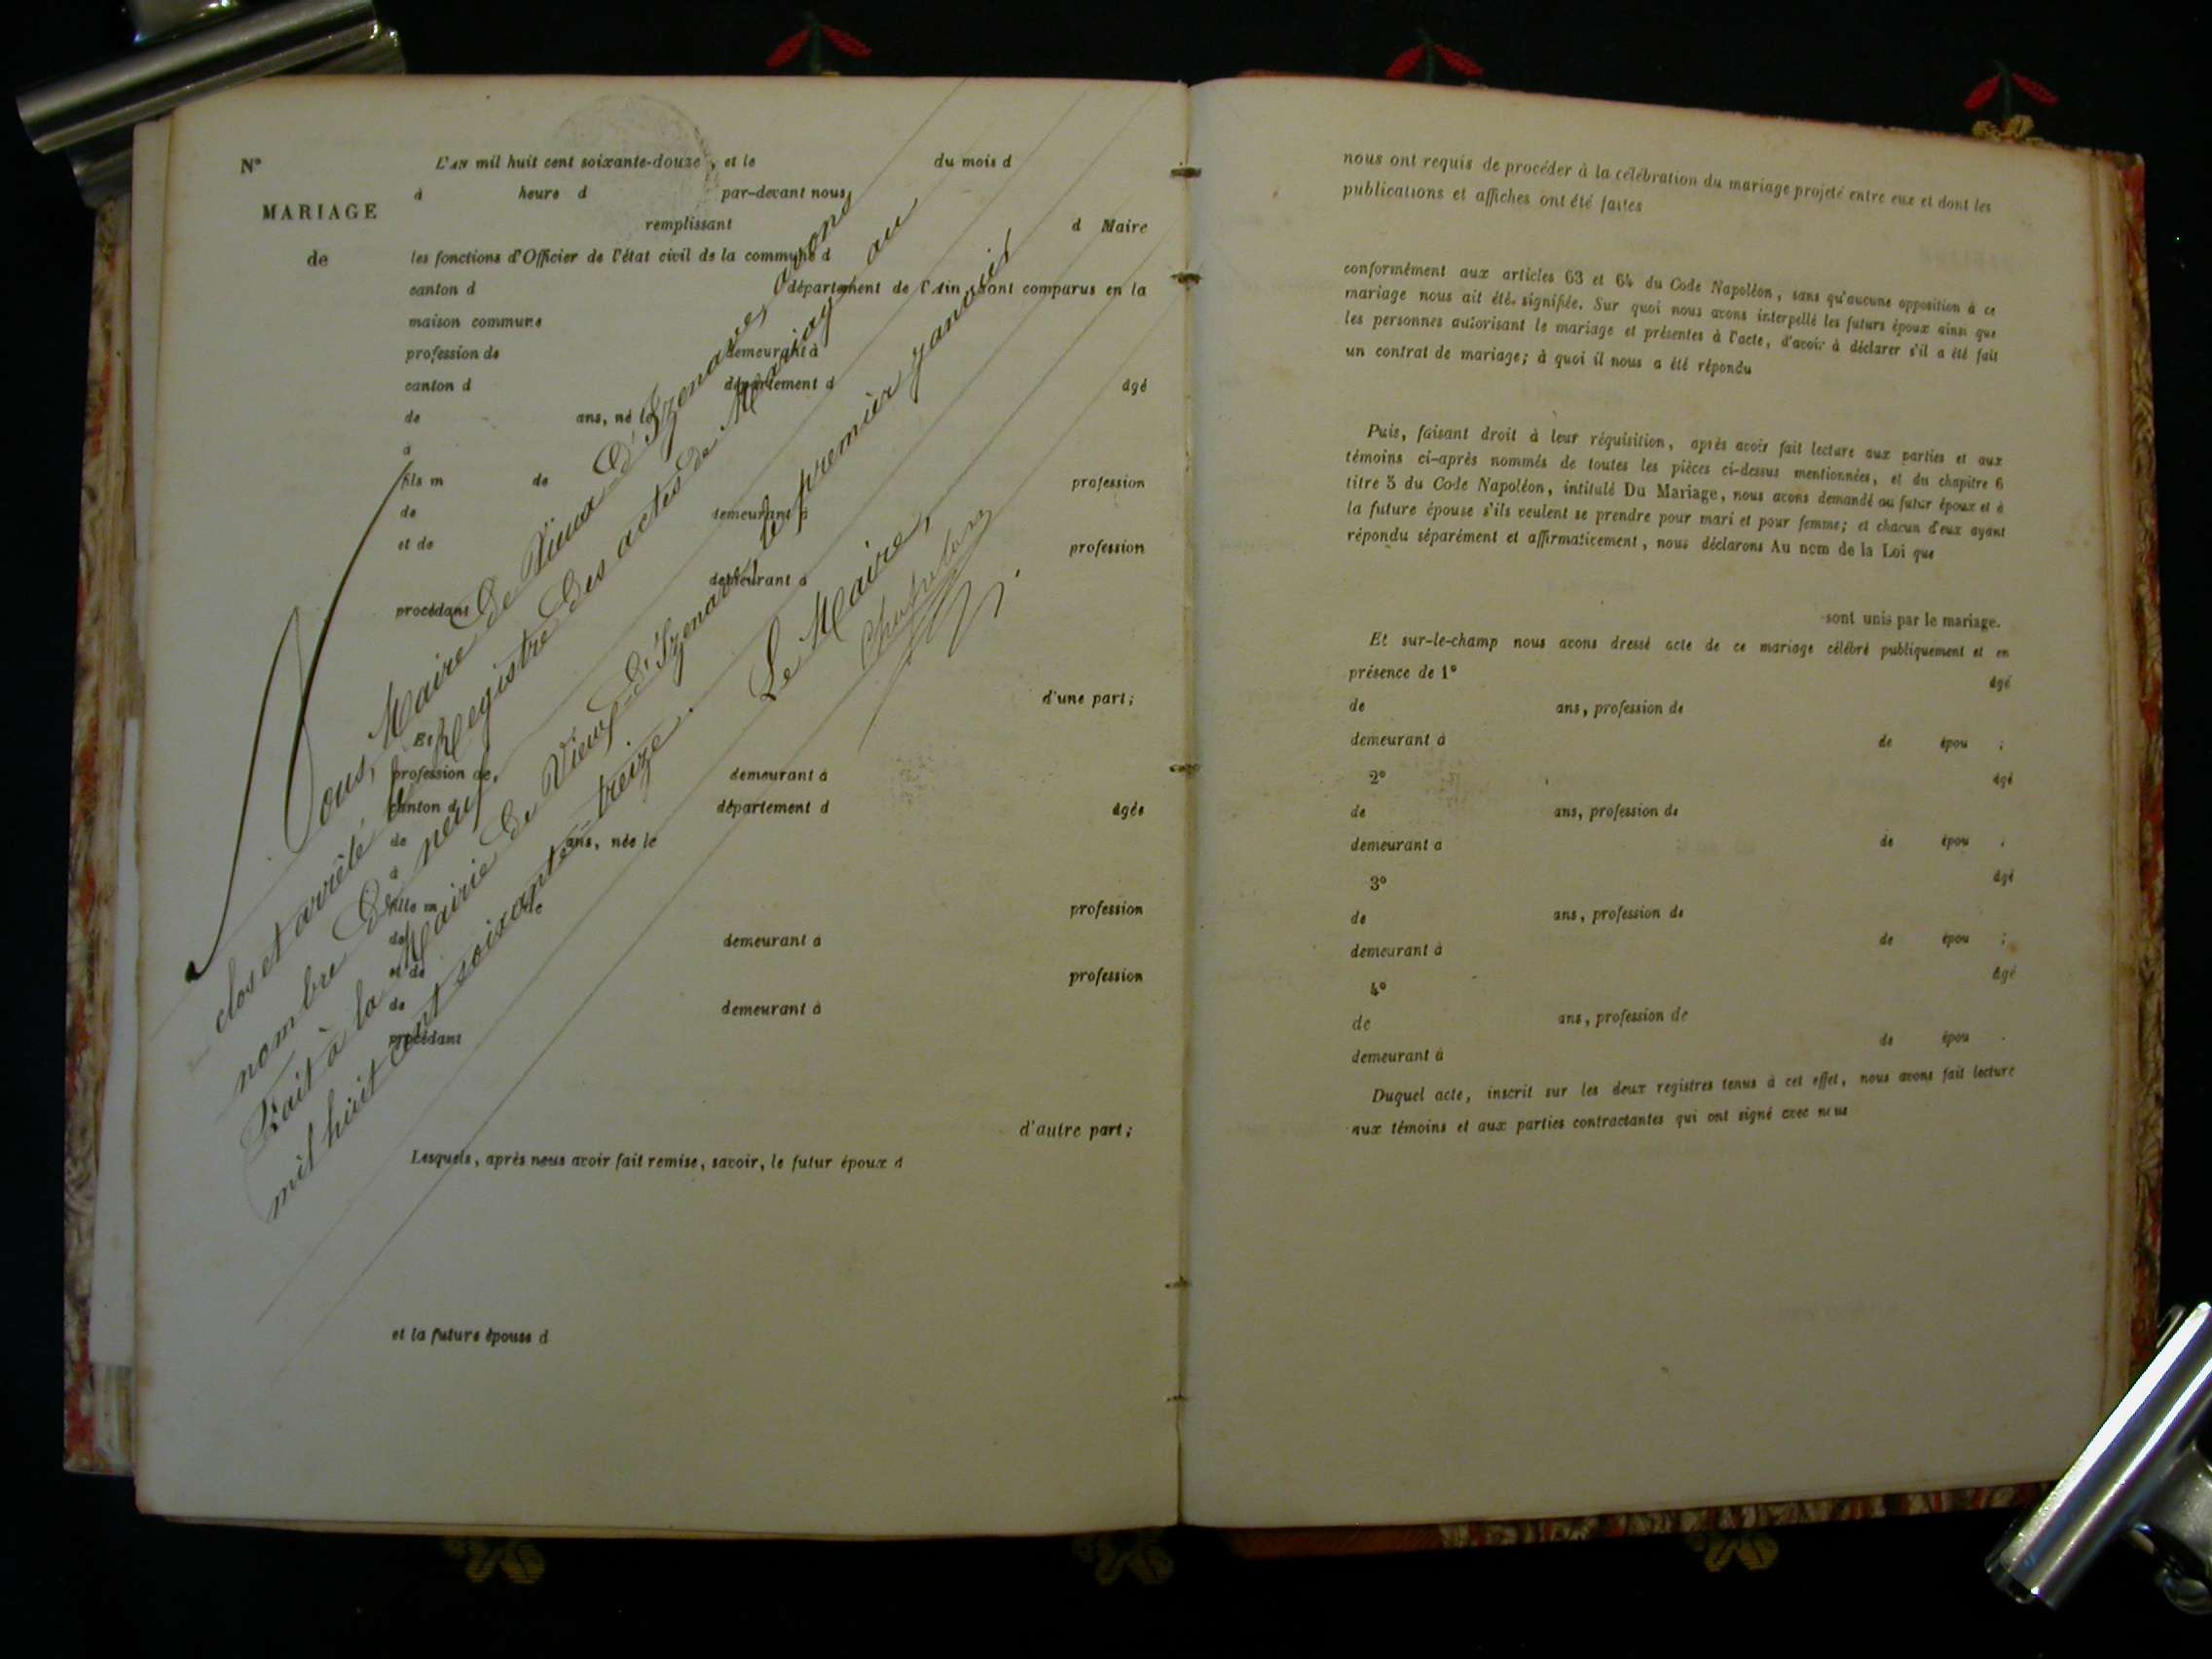 N°
L'AN mil huit cent soixante-douze, et le du mois d
MARIAGE
de
à heure d par-devant nous
remplissant d Maire
les fonctions d'Officier de l'état civil de la commune d
canton d département de l'Ain, sont comparus en la
maison commune
profession de demeurant à
canton d département d âgé
de ans, né le
à
fils m de profession
de demeurant à
et de profession
demeurant à
procédant
d'une part;
Et
profession de demeurant à
canton d département d âgée
de ans, née le
à
fille m de profession
de demeurant à
et de profession
de demeurant à
procédant
d'autre part;
Lesquels, après nous avoir fait remise, savoir, le futur époux d
et la future épouse d
Nous, Maire de Vieux d'Izenave, avons
clos et arrêté le Registre des actes de Mariage au
nombre de neuf.
Fait à la Mairie de Vieux-d'Izenave le premier janvier
mil huit cent soixante-treize.
Le Maire,
nous ont requis de procéder à la célébration du mariage projeté entre eux et dont les
publications et affiches ont été faites
conformément aux articles 63 et 64 du Code Napoléon, sans qu'aucune opposition à ce
mariage nous ait été signifiée. Sur quoi nous avons interpellé les futurs époux ainsi que
les personnes autorisant le mariage et présentes à l'acte, d'avoir à déclarer s'il a été fait
un contrat de mariage; à quoi il nous a été répondu
Puis, faisant droit à leur réquisition, après avoir fait lecture aux parties et aux
témoins ci-après nommés de toutes les pièces ci-dessus mentionnées, et du chapitre 6
titre 5 du Code Napoléon, intitulé Du Mariage, nous avons demandé au futur époux et à
la future épouse s'ils veulent se prendre pour mari et pour femme; et chacun d'eux ayant
répondu séparément et affirmativement, nous déclarons Au nom de la Loi que
sont unis par le mariage.
Et sur-le-champ nous avons dressé acte de ce mariage célébré publiquement et en
présence de 1° âgé
de ans, profession de
demeurant à de épou ;
2° âgé
de ans, profession de
demeurant a de épou ;
3° âgé
de ans, profession de
demeurant à de épou ;
4° âgé
de ans, profession de
demeurant à de épou .
Duquel acte, inscrit sur les deux registres tenus à cet effet, nous avons fait lecture
aux témoins et aux parties contractantes qui ont signé avec nous